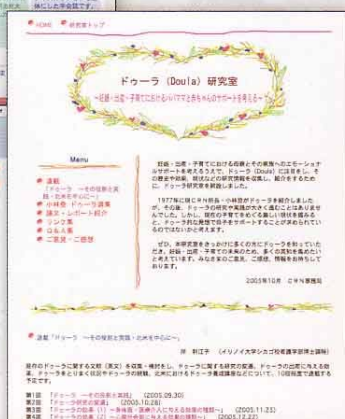 体にした学会誌です。
HOME 研究室トップ
ドゥーラ (Doula) 研究室
~妊娠・出産・子育てにおけるパパママと赤ちゃんのサポートを考える~
Menu
連載
「ドゥーラ －その役割と実践・北米を中心に－」
小林登 ドゥーラ選集
論文・レポート紹介
リンク集
Q & A集
ご意見・ご感想
妊娠・出産・子育てにおける母親とその家族へのエモーショナルサポートを考えるうえで、ドゥーラ (Doula) に注目をし、そ
の歴史や効果、現状などの研究情報を収集し、紹介をするため
に、ドゥーラ研究室を開設しました。
1977年に現CRN所長・小林登がドゥーラを紹介しました
が、その後、ドゥーラの研究や実践が大きく進むことはありませ
んでした。しかし、現在の子育てをめぐる厳しい現状を鑑みる
と、ドゥーラ的な発想で母子をサポートすることが求められてい
るのではないかと考えます。
ぜひ、本研究室をきっかけに多くの方にドゥーラを知っていた
だき、妊娠・出産・子育ての未来のため、多くの英知を集めたい
と考えています。みなさまのご意見、ご感想、情報をお待ちして
おります。
2005年10月 CRN事務局
連載「ドゥーラ －その役割と実践・北米を中心に－」
岸 利江子 (イリノイ大学シカゴ校看護学部博士課程)
既存のドゥーラに関する文献(英文)を収集・検討をし、ドゥーラに関する研究の変遷、ドゥーラの出産に与える効
果、ドゥーラをとりまく状況やドゥーラの経験、北米におけるドゥーラ養成講座などについて、10回程度で連載する
予定です。
第1回 「ドゥーラ －その役割と実践」 (2005.09.30)
第2回 「ドゥーラ研究の変遷」 (2005.10.28)
第3回 「ドゥーラの効果 (1) －身体面・医療介入に与える効果の種類－」 (2005.11.25)